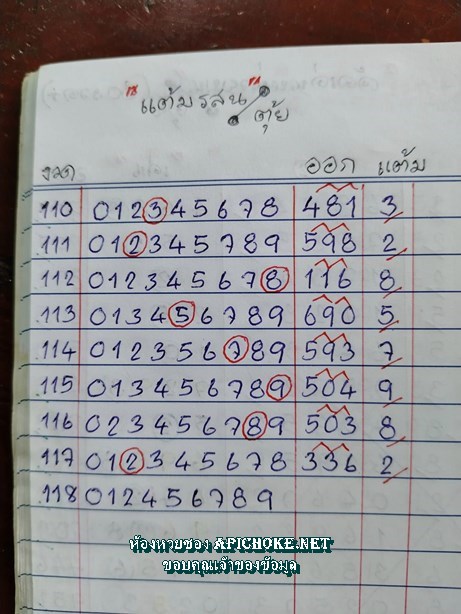 แต้มรสน
ตุ้ย
งวด ออก แต้ม
110 012345678 481 3
111 012345789 598 2
112 012345678 116 8
113 013456789 690 5
114 012356789 593 7
115 013456789 504 9
116 023456789 503 8
117 012345678 336 2
118 012456789
ห้องหวยซอง APICHOKE.NET
ขอบคุณเจ้าของข้อมูล